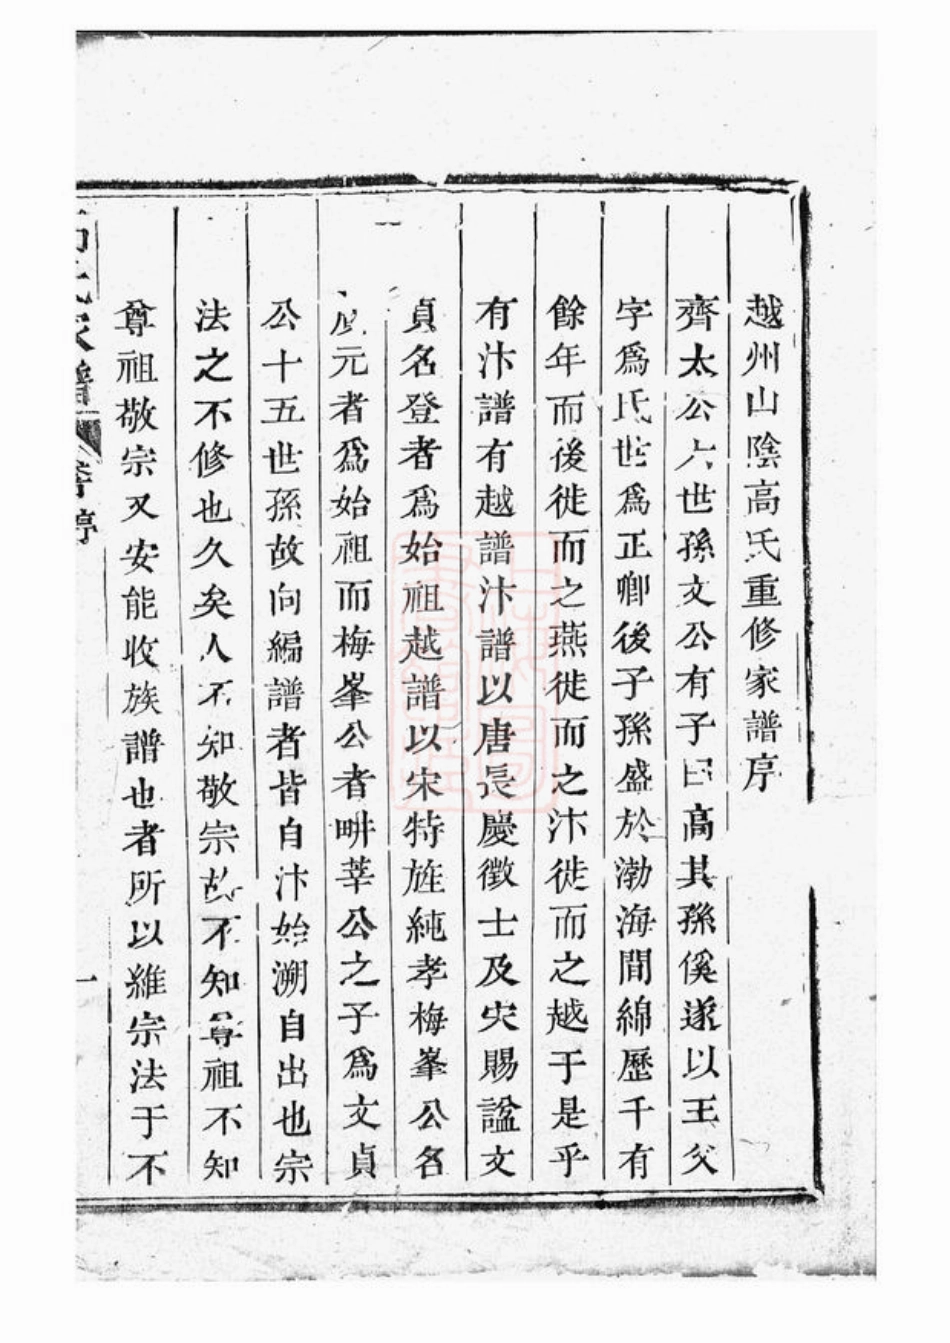 越州山陰高氏重修家譜序
齊太公六世孫文公有子曰高其孫傒遂以王父
字爲氏世爲正卿後子孫盛於渤海間綿歷千有
餘年而後徙而之燕徙而之汴徙而之越于是乎
有汴譜有越譜汴譜以唐長慶徵士及宋賜諡文
貞名登者爲始祖越譜以宋特旌純孝梅峯公名
元者爲始祖而梅峯公者畊莘公之子爲文貞
公十五世孫故向編譜者皆自汴始溯自出也宗
法之不修也久矣人不知敬宗故不知尊祖不知
尊祖敬宗又安能收族譜也者所以維宗法于不
氏家譜
序
一